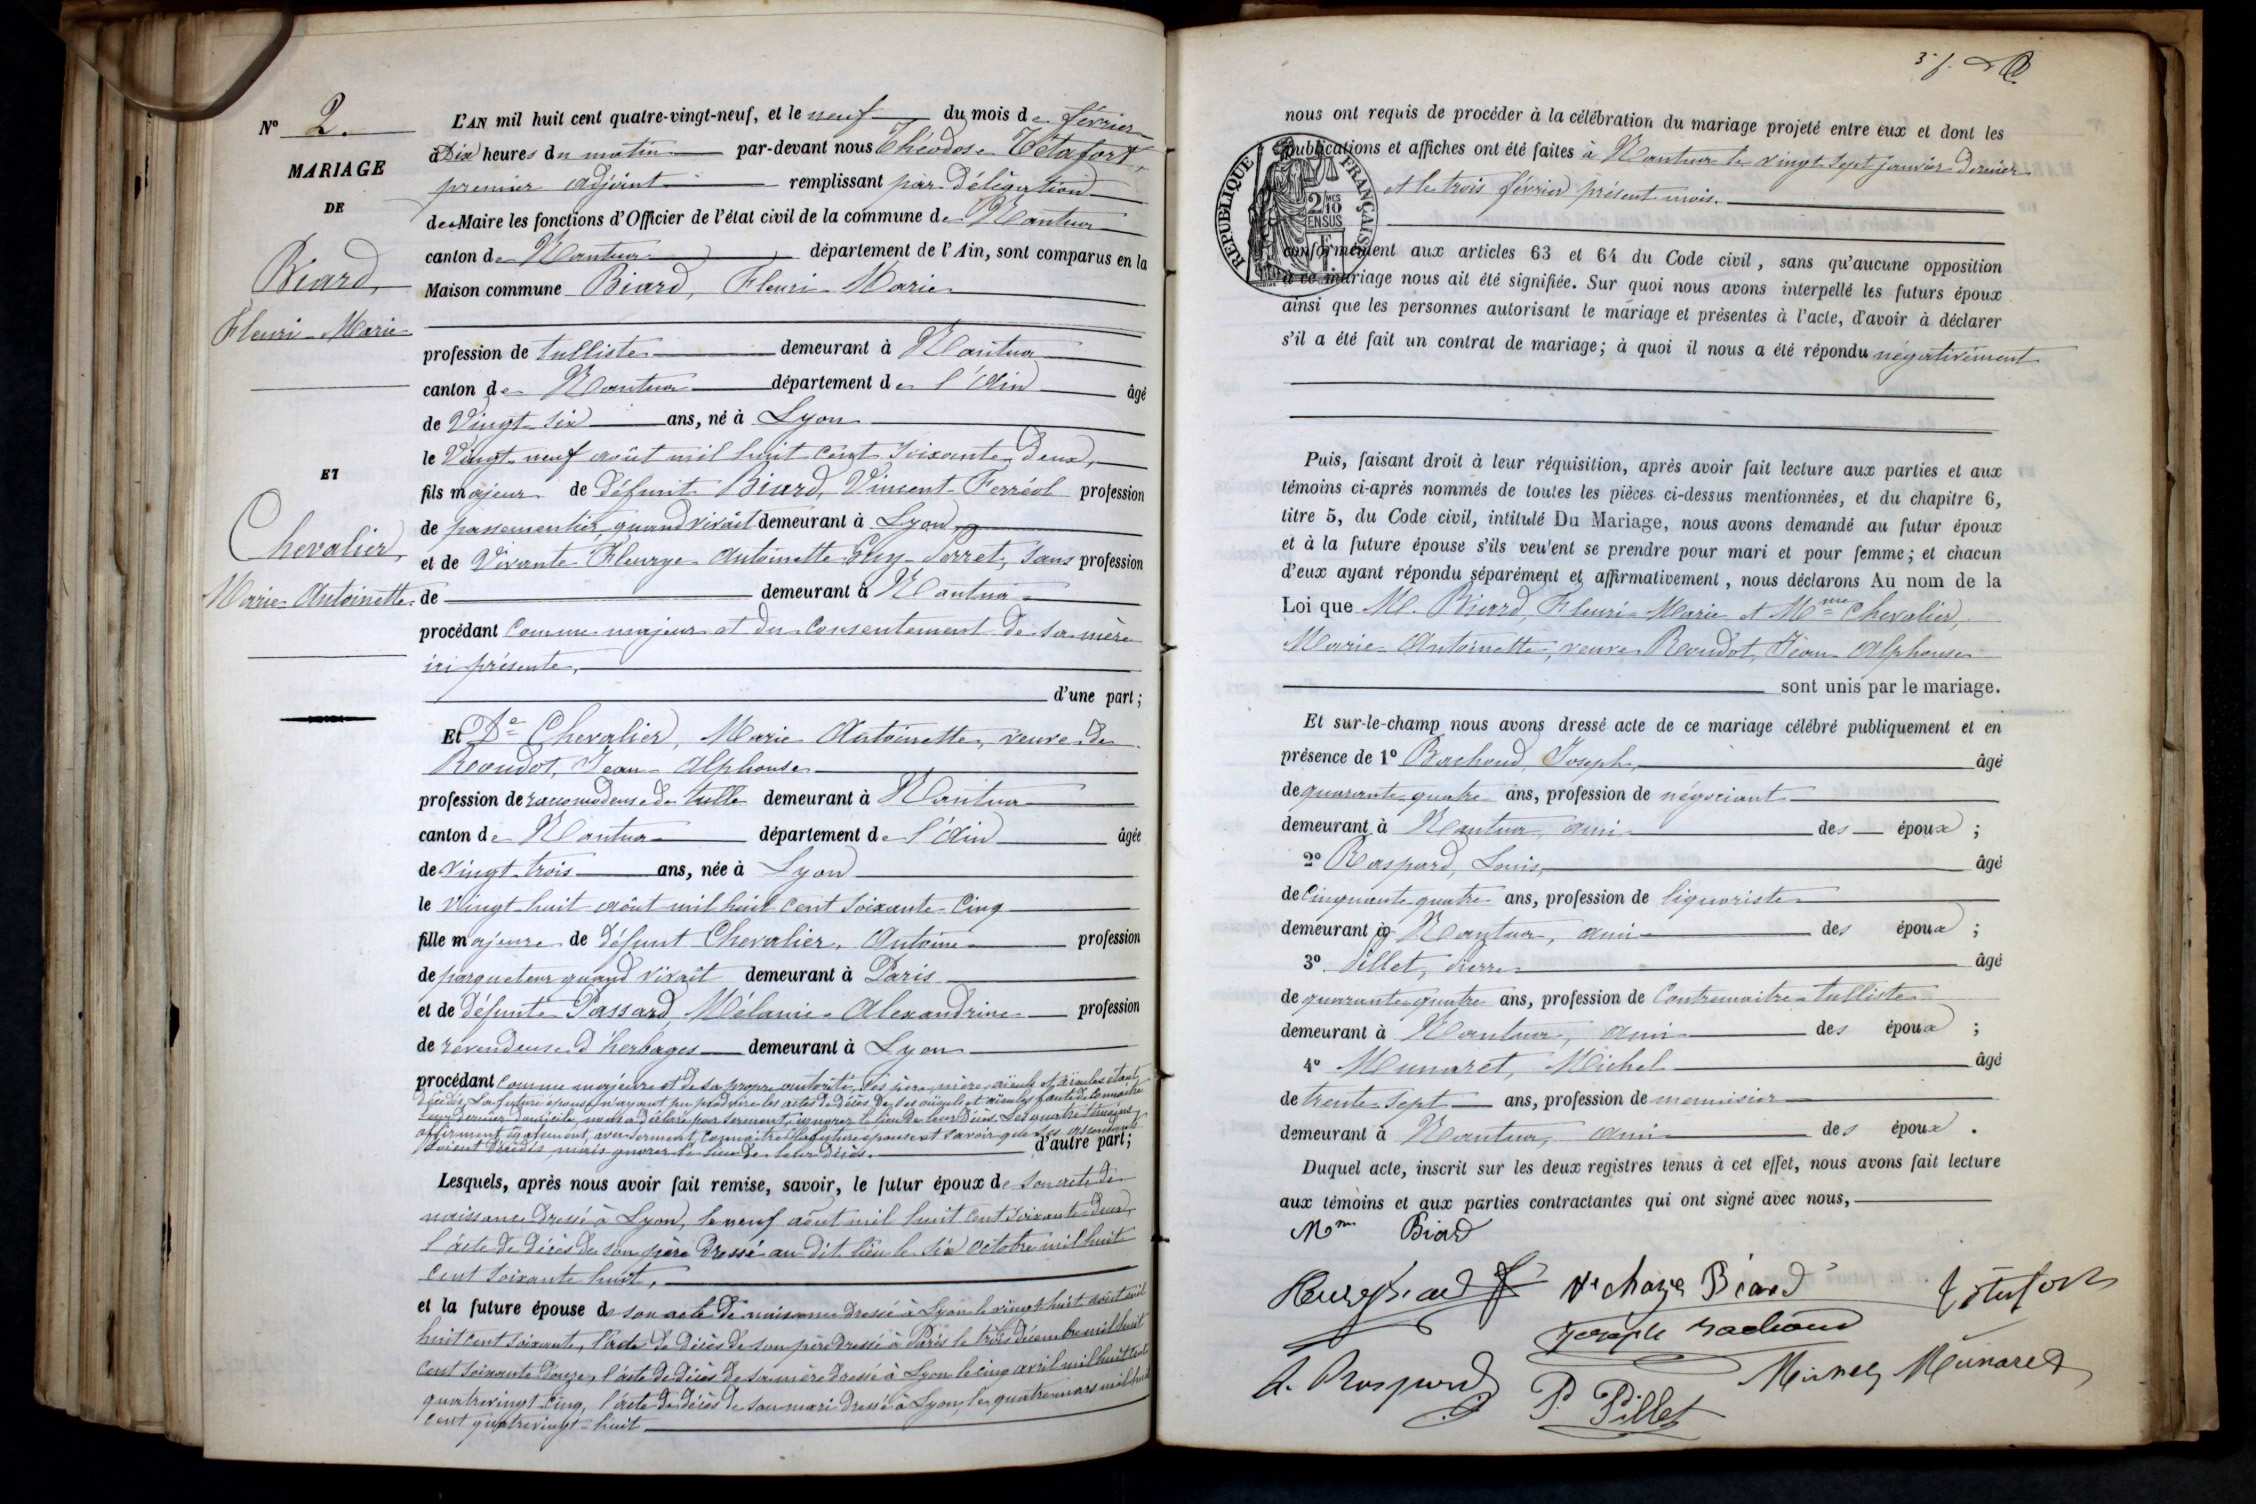 Nº 2.
MARIAGE
DE
Biard,
Fleuri-Marie
ET
Chevalier,
Marie-Antoinette
L'AN mil huit cent quatre-vingt-neuf, et le neuf du mois de février
à Dix heures du matin par-devant nous Théodose Tétafort,
premier adjoint remplissant par délégation
de Maire les fonctions d'Officier de l'état civil de la commune de Nantua
canton de Nantua département de l'Ain, sont comparus en la
Maison commune Biard, Fleuri-Marie
profession de tulliste demeurant à Nantua
canton de Nantua département de l'Ain âgé
de Vingt six ans, né à Lyon
le Vingt-neuf août mil huit cent soixante-deux,
fils majeur de défunt Biard, Vincent-Ferréol profession
de passementier, quand vivait demeurant à Lyon
et de Vivante Fleurye-Antoinette Guy-Perret, sans profession
de demeurant à Nantua
procédant comme majeur et du consentement de sa mère
ici présente,
d'une part;
Et De Chevalier, Marie Antoinette, veuve de
Roudot, Jean-Alphonse
profession de racomodeuse de tulle demeurant à Nantua
canton de Nantua département de l'Ain âgée
de vingt-trois ans, née à Lyon
le Vingt-huit août mil huit cent soixante-cinq
fille majeure de défunt Chevalier, Antoine profession
de parqueteur quand vivait demeurant à Paris
et de défunte Passard Mélanie-Alexandrine profession
de revendeuse d'herbages demeurant à Lyon
procédant comme majeure et de sa propre autorité, ses père, mère, aïeuls et aïeules étant
décédés, La future épouse n'ayant pu produire les actes de décès de ses aïeuls et aïeules faute de connaître
leur dernier domicile, nous a déclaré par serment, ignorer le lieu de leur décès. Les quatre témoins
affirment également, avec serment, connaître la future épouse et savoir que ses ascendants
soient décédés, mais ignorer le lieu de leur décès. d'autre part;
Lesquels, après nous avoir fait remise, savoir, le futur époux de son acte de
naissance dressé à Lyon, le neuf août mil huit cent soixante-deux,
l'acte de décès de son père dressé au dit lieu le six octobre mil huit
cent soixante huit,
et la future épouse de son acte de naissance dressé à Lyon le vingt-huit août mil
huit cent soixante, l'acte de décès de son père dressé à Paris le trois décembre mil huit
cent soixante douze, l'acte de décès de sa mère dressé à Lyon le cinq avril mil huit cent
quatrevingt-cinq, l'acte de décès de son mari dressé à Lyon le quatre mars mil huit
cent quatrevingt-huit
nous ont requis de procéder à la célébration du mariage projeté entre eux et dont les
publications et affiches ont été faites à Nantua le vingt sept janvier dernier
et le trois février présent mois.
REPUBLIQUE FRANÇAISE
2/10
EN SUS
conformément aux articles 63 et 64 du Code civil, sans qu'aucune opposition
à ce mariage nous ait été signifiée. Sur quoi nous avons interpellé les futurs époux
ainsi que les personnes autorisant le mariage et présentes à l'acte, d'avoir à déclarer
s'il a été fait un contrat de mariage; à quoi il nous a été répondu négativement
Puis, faisant droit à leur réquisition, après avoir fait lecture aux parties et aux
témoins ci-après nommés de toutes les pièces ci-dessus mentionnées, et du chapitre 6,
titre 5, du Code civil, intitulé Du Mariage, nous avons demandé au futur époux
et à la future épouse s'ils veulent se prendre pour mari et pour femme; et chacun
d'eux ayant répondu séparément et affirmativement, nous déclarons Au nom de la
Loi que M. Biard, Fleuri-Marie et Mme Chevalier,
Marie-Antoinette, veuve Roudot, Jean-Alphonse
sont unis par le mariage.
Et sur-le-champ nous avons dressé acte de ce mariage célébré publiquement et en
présence de 1º Bachoud, Joseph, âgé
de quarante quatre ans, profession de négociant
demeurant à Nantua, ami des époux ;
2º Raspard, Louis, âgé
de Cinquante quatre ans, profession de liquoriste
demeurant à Nantua, ami des époux ;
3º Pillet, Pierre âgé
de quarante-quatre ans, profession de Contremaitre-tulliste
demeurant à Nantua, ami des époux ;
4º Munaret, Michel âgé
de trente-sept ans, profession de menuisier
demeurant à Nantua, ami des époux .
Duquel acte, inscrit sur les deux registres tenus à cet effet, nous avons fait lecture
aux témoins et aux parties contractantes qui ont signé avec nous,
Mme Biard
Ve Biard
Tétafort
Joseph Bachoud
Raspard
P. Pillet
Michel Munaret